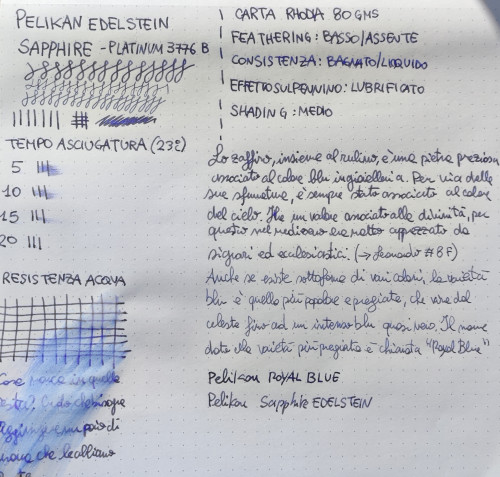 PELIKAN EDELSTEIN
SAPPHIRE - PLATINUM 3776 B
TEMPO ASCIUGATURA (23°)
5
10
15
20
RESISTENZA ACQUA
Cosa nasce in quelle
CARTA RHODIA 80 GMS
FEATHERING: BASSO/ASSENTE
CONSISTENZA: BAGNATO/LIQUIDO
EFFETTO SUL PENNINO: LUBRIFICATO
SHADING: MEDIO
Lo zaffiro, insieme al rubino, è una pietra preziosa
associata al colore blu in gioielleria. Per via delle
sue sfumature, è sempre stato associato al colore
del cielo. Ha un valore associato alla divinità, per
questo nel medioevo era molto apprezzato da
signori ed ecclesiastici. (→ Leonardo #8F)
Anche se esiste sottoforma di vari colori, la varietà
blu è quella più popolare e pregiata, che varia dal
celeste fino ad un intenso blu quasi nero. Il nome
dato alla varietà più pregiata è chiamata "Royal Blue"
Pelikan ROYAL BLUE
Pelikan Sapphire EDELSTEIN